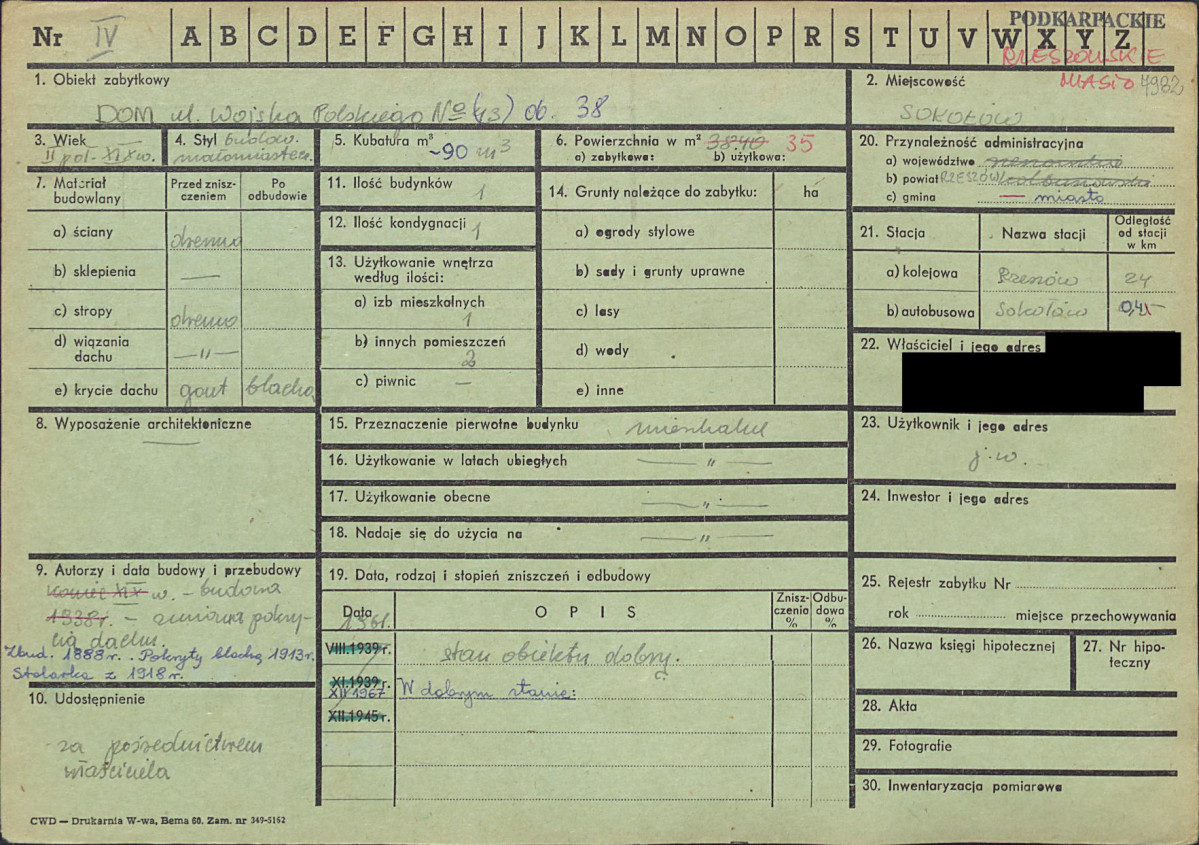 PODKARPACKIE
Nr IV A B C D E F G H I J K L M N O P R S T U V W X Y Z
RZESZOWSKIE
MIASTO 7982
1. Obiekt zabytkowy
DOM ul. Wojska Polskiego No (43) ob. 38
2. Miejscowość
SOKOŁÓW
3. Wiek
II poł. XIX w.
4. Styl budow.
małomiastecz.
5. Kubatura m³
~90 m³
6. Powierzchnia w m² 38.40 35
a) zabytkowa: b) użytkowa:
20. Przynależność administracyjna
a) województwo rzeszowskie
b) powiat RZESZÓW kolbuszowski
c) gmina — miasto
7. Materiał budowlany
Przed zniszczeniem
Po odbudowie
a) ściany drewno
b) sklepienia —
c) stropy drewno
d) wiązania dachu —"—
e) krycie dachu gont blacha
11. Ilość budynków 1
12. Ilość kondygnacji 1
13. Użytkowanie wnętrza według ilości:
a) izb mieszkalnych
1
b) innych pomieszczeń
2
c) piwnic —
14. Grunty należące do zabytku: ha
a) ogrody stylowe
b) sady i grunty uprawne
c) lasy
d) wody
e) inne
21. Stacja Nazwa stacji Odległość od stacji w km
a) kolejowa Rzeszów 24
b) autobusowa Sokołów 0,4
22. Właściciel i jego adres
8. Wyposażenie architektoniczne
—
15. Przeznaczenie pierwotne budynku mieszkalne
16. Użytkowanie w latach ubiegłych —"—
17. Użytkowanie obecne —"—
18. Nadaje się do użycia na —"—
23. Użytkownik i jego adres
j.w.
24. Inwestor i jego adres
9. Autorzy i data budowy i przebudowy
koniec XIX w. – budowa
1938r. – zmiana pokry-
cia dachu.
Zbud. 1888 r. Pokryty blachą 1913r.
Stolarka z 1918 r.
10. Udostępnienie
za pośrednictwem
właściciela
19. Data, rodzaj i stopień zniszczeń i odbudowy
Data OPIS Zniszczenia % Odbudowa %
1961.
VIII.1939 r. stan obiektu dobry.
XI.1939 r.
XII 1967 W dobrym stanie:
XII.1945 r.
25. Rejestr zabytku Nr
rok miejsce przechowywania
26. Nazwa księgi hipotecznej
27. Nr hipoteczny
28. Akta
29. Fotografie
30. Inwentaryzacja pomiarowa
CWD — Drukarnia W-wa, Bema 60. Zam. nr 349-5162